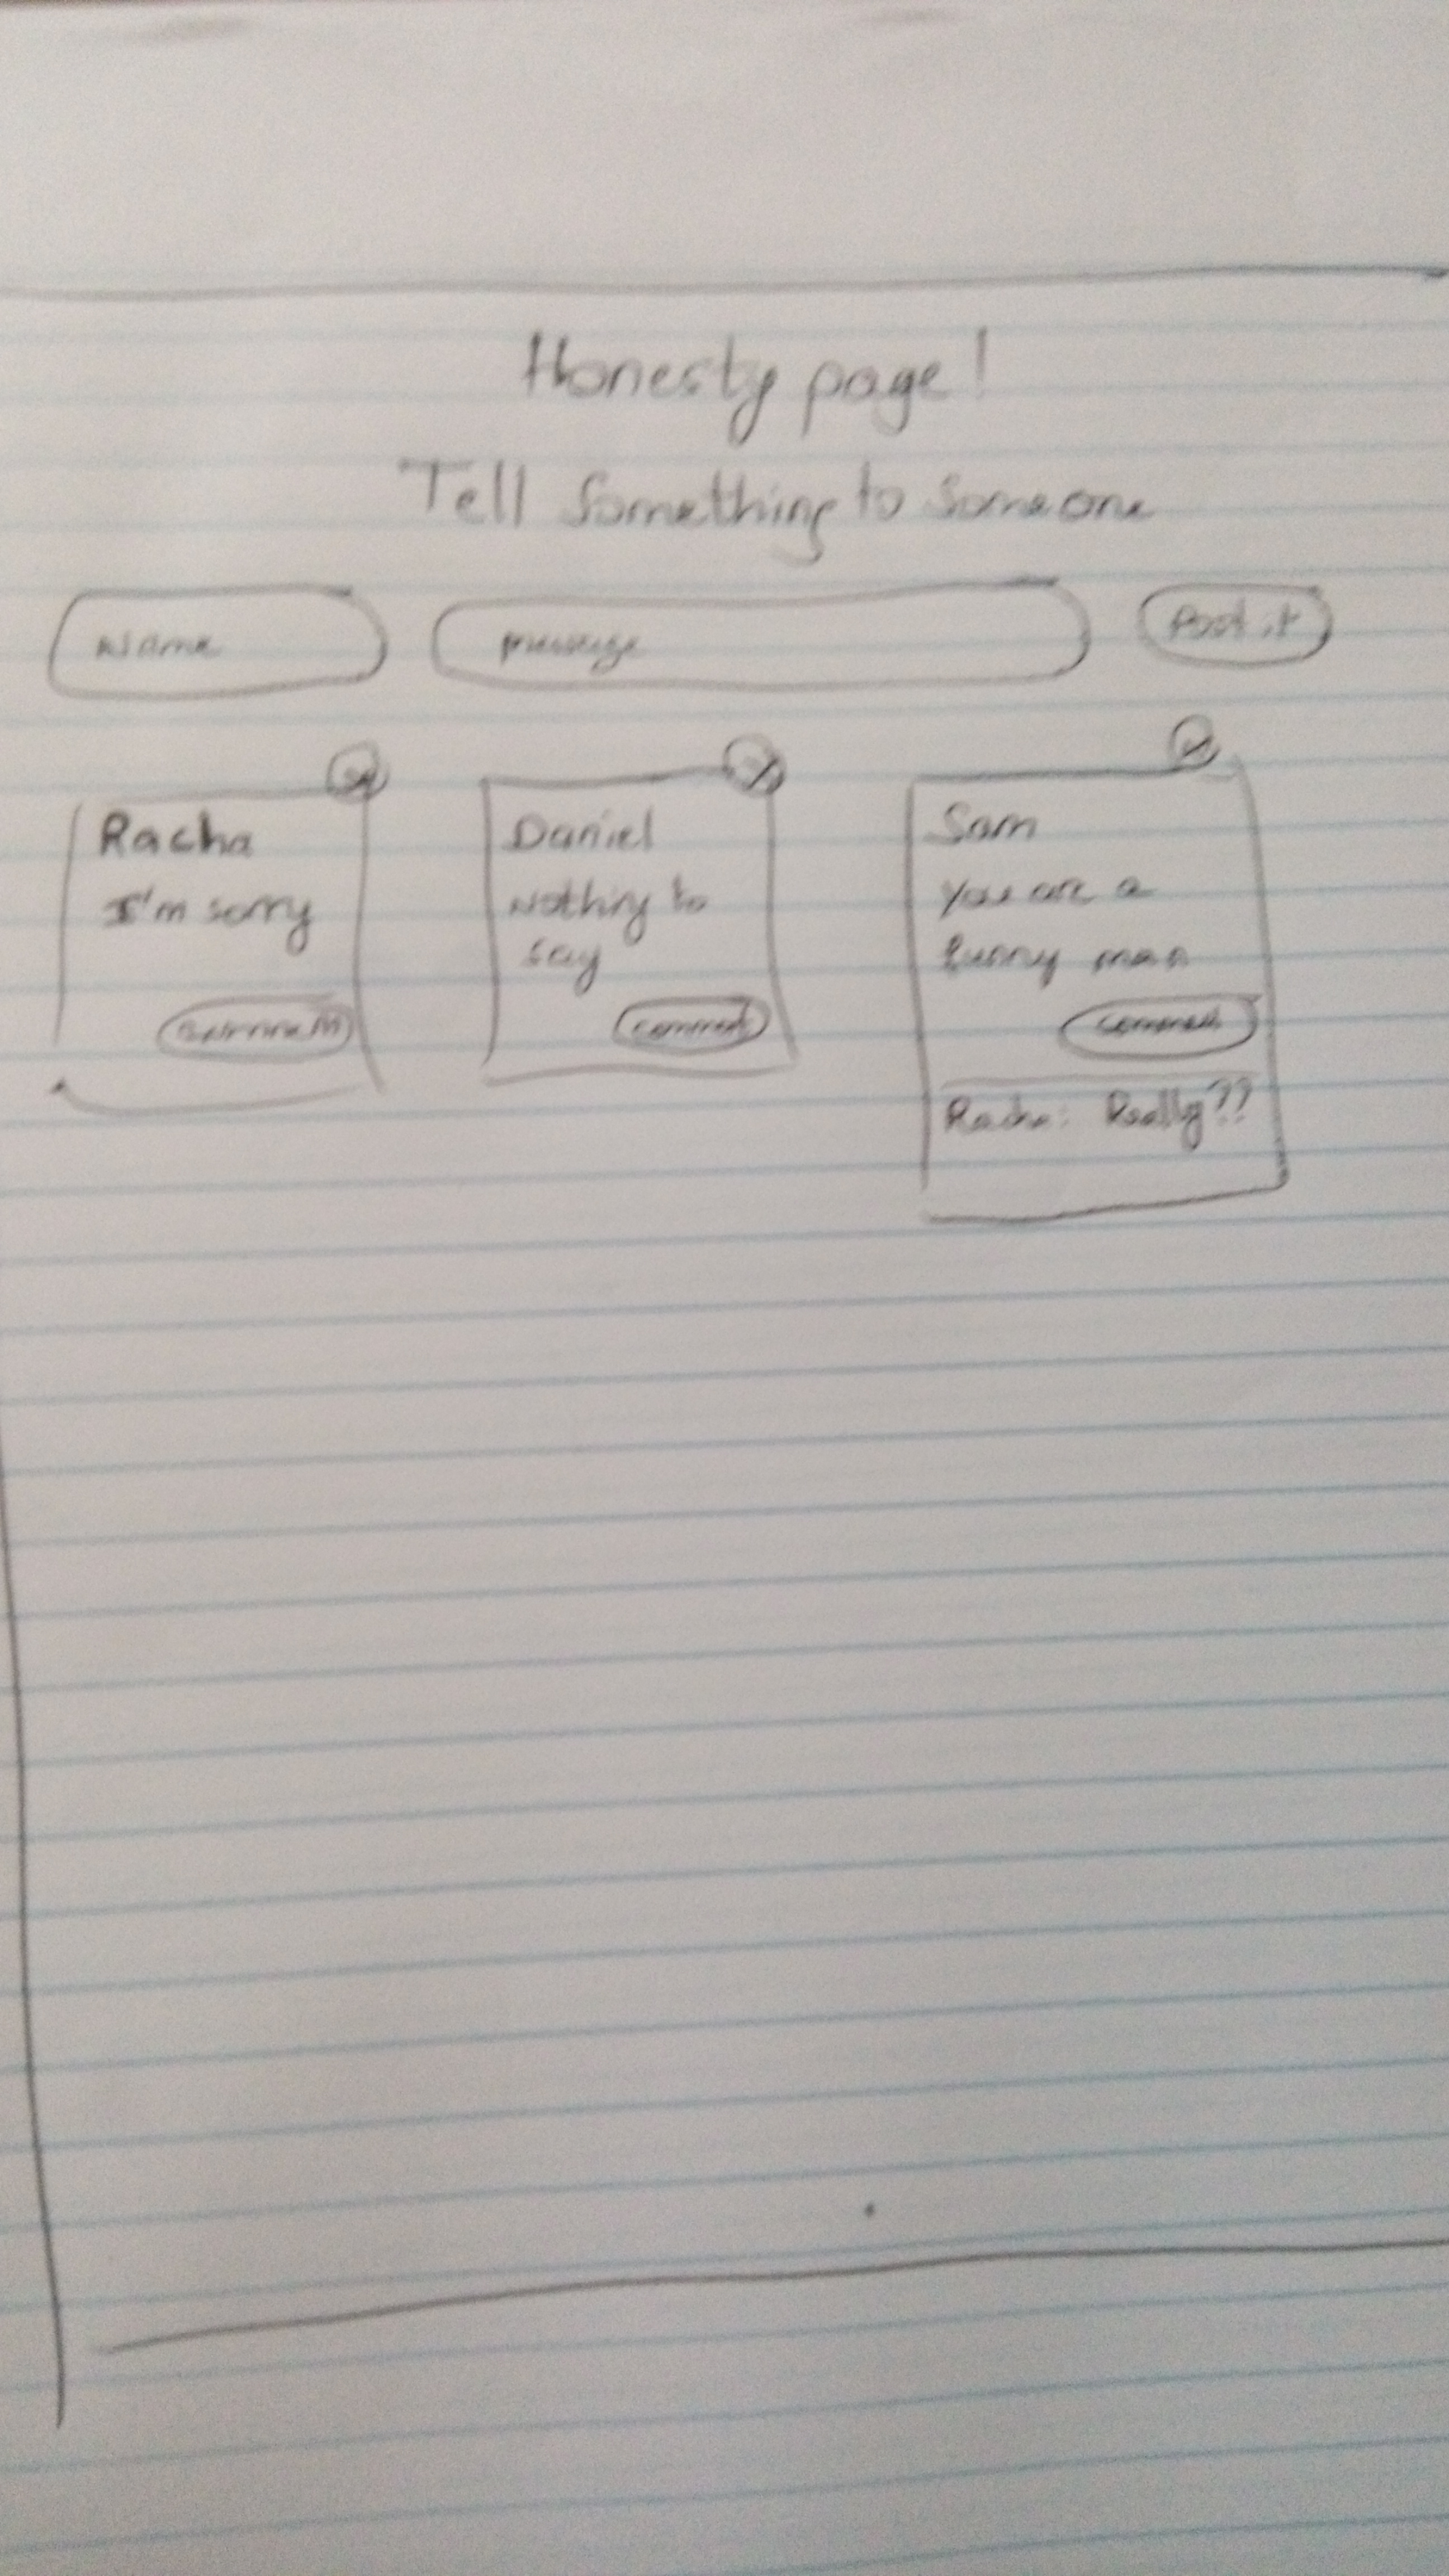 Honesty page!
Tell Something to Someone
Name
message
Post it
Racha
I'm sorry
comment
Daniel
Nothing to
say
comment
Sam
You are a
funny man
comment
Racha: Really??